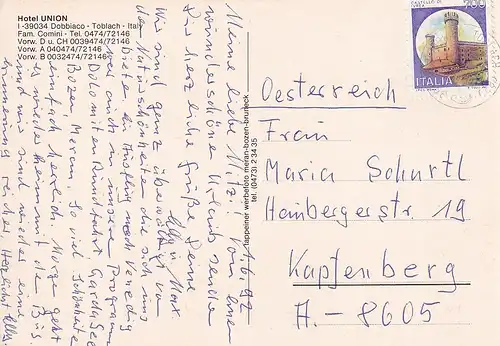 Hotel UNION
I -39034 Dobbiaco - Toblach - Italy
Fam. Comini - Tel. 0474/72146
Vorw. D u. CH 0039474/72146
Vorw. A 040474/72146
Vorw. B 0032474/72146
1.6.92
Meine liebe Mitz! Von einem
wunderschönen Urlaub sende
Dir herzliche Grüße Deine
Elly u Max
Wir sind ganz überwältigt von
den Naturschönheiten die sich uns
Bieten. Ein Ausflug nach Venedig
war auch in unserem Programm
Dolomiten Rundfahrt GardaSee
Bozen, Meran. So viel Schönheiten
einfach herrlich. Morgen geht
es wieder heimwärts mit dem Bus.
und wir sind wieder um eine
Erinnerung reicher. Herzlichst Elly.
tappeiner werbefoto meran-bozen-bruneck
tel. (0473) 2 34 35
700
ITALIA
Oesterreich
Frau
Maria Schurtl
Hainbergerstr 19
Kapfenberg
A.-8605